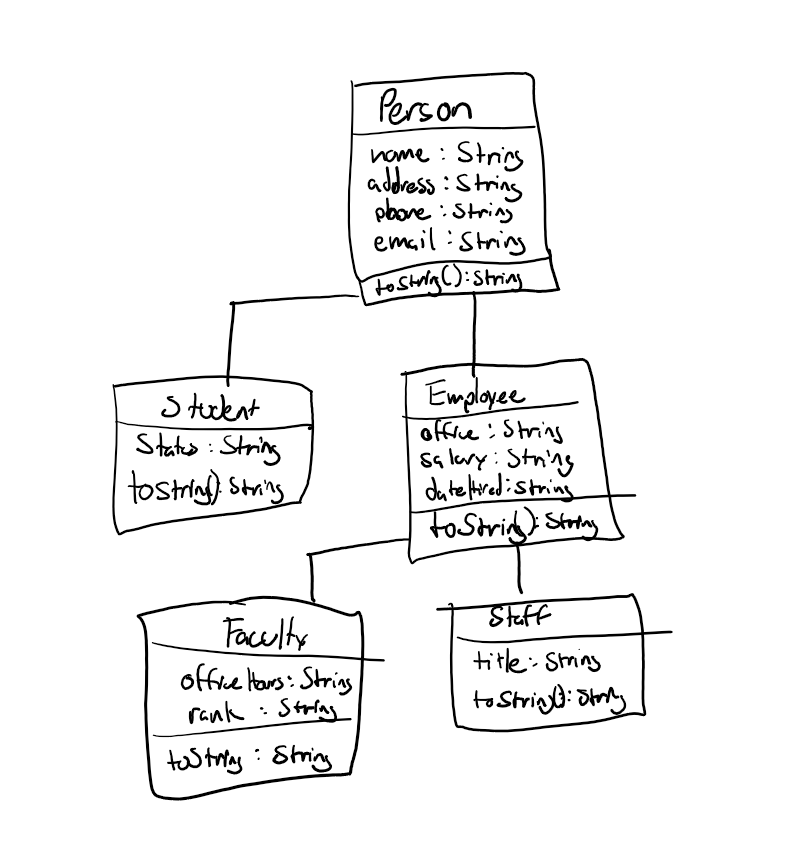 Person
name : String
address : String
phone : String
email : String
toString() : String
Student
Status : String
toString() : String
Employee
office : String
salary : String
dateHired : String
toString() : String
Faculty
officeHours : String
rank : String
toString : String
Staff
title : String
toString() : String